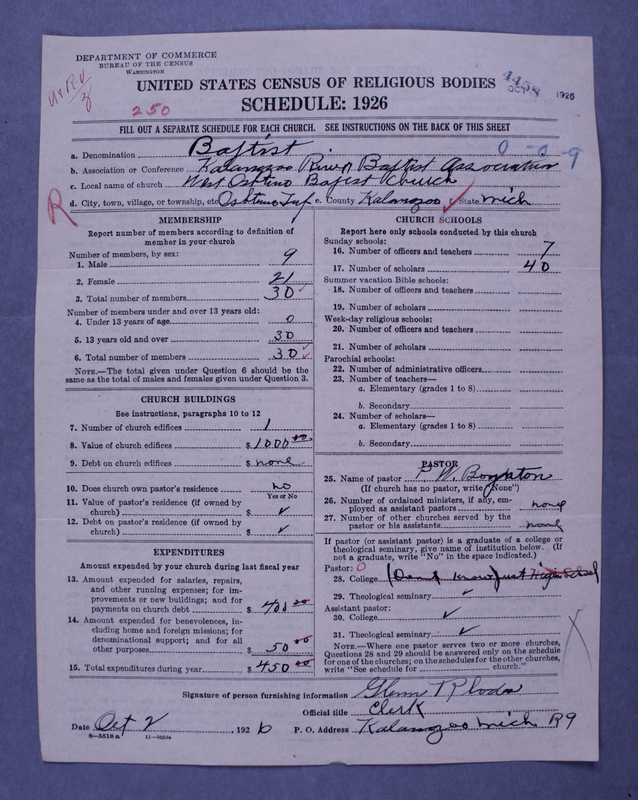 DEPARTMENT OF COMMERCE
BUREAU OF THE CENSUS
WASHINGTON
UNITED STATES CENSUS OF RELIGIOUS BODIES
SCHEDULE: 1926
4458
OCT 1926
250
FILL OUT A SEPARATE SCHEDULE FOR EACH CHURCH. SEE INSTRUCTIONS ON THE BACK OF THIS SHEET
0-0-9
a. Denomination Baptist
b. Association or Conference Kalamazoo River Baptist Association
c. Local name of church West Oshtemo Baptist Church
d. City, town, village, or township, etc. Oshtemo Twp e. County Kalamazoo State Mich
R
MEMBERSHIP
Report number of members according to definition of
member in your church
Number of members, by sex:
1. Male 9
2. Female 21
3. Total number of members 30
Number of members under and over 13 years old:
4. Under 13 years of age 0
5. 13 years old and over 30
6. Total number of members 30
NOTE.—The total given under Question 6 should be
same as the total of males and females given under Question 3.
CHURCH BUILDINGS
See instructions, paragraphs 10 to 12
7. Number of church edifices 1
8. Value of church edifices $ 1000 00
9. Debt on church edifices $ none
10. Does church own pastor's residence no
Yes or No
11. Value of pastor's residence (if owned by
church) $ ✓
12. Debt on pastor's residence (if owned by
church) $ ✓
EXPENDITURES
Amount expended by your church during last fiscal year
13. Amount expended for salaries, repairs,
and other running expenses; for im-
provements or new buildings; and for
payments on church debt $ 400 00
14. Amount expended for benevolences, in-
cluding home and foreign missions; for
denominational support; and for all
other purposes $ 50 00
15. Total expenditures during year $ 450 00
CHURCH SCHOOLS
Report here only schools conducted by this church
Sunday schools:
16. Number of officers and teachers 7
17. Number of scholars 40
Summer vacation Bible schools:
18. Number of officers and teachers
19. Number of scholars
Week-day religious schools:
20. Number of officers and teachers
21. Number of scholars
Parochial schools:
22. Number of administrative officers
23. Number of teachers—
a. Elementary (grades 1 to 8)
b. Secondary
24. Number of scholars—
a. Elementary (grades 1 to 8)
b. Secondary
PASTOR
25. Name of pastor P. W. Boynton
(If church has no pastor, write "None")
26. Number of ordained ministers, if any, em-
ployed as assistant pastors none
27. Number of other churches served by the
pastor or his assistants none
If pastor (or assistant pastor) is a graduate of a college or
theological seminary, give name of institution below. (If
not a graduate, write "No" in the space indicated.)
Pastor: 0
28. College (Don't know just High School
29. Theological seminary ✓
Assistant pastor:
30. College ✓
31. Theological seminary ✓
NOTE.—Where one pastor serves two or more churches,
Questions 28 and 29 should be answered only on the schedule
for one of the churches; on the schedules for the other churches,
write "See schedule for church."
Signature of person furnishing information Glenn T Rhodes
Official title Clerk
Date Oct 2, 1926 P. O. Address Kalamazoo Mich R9
8—5518a 11—9554a